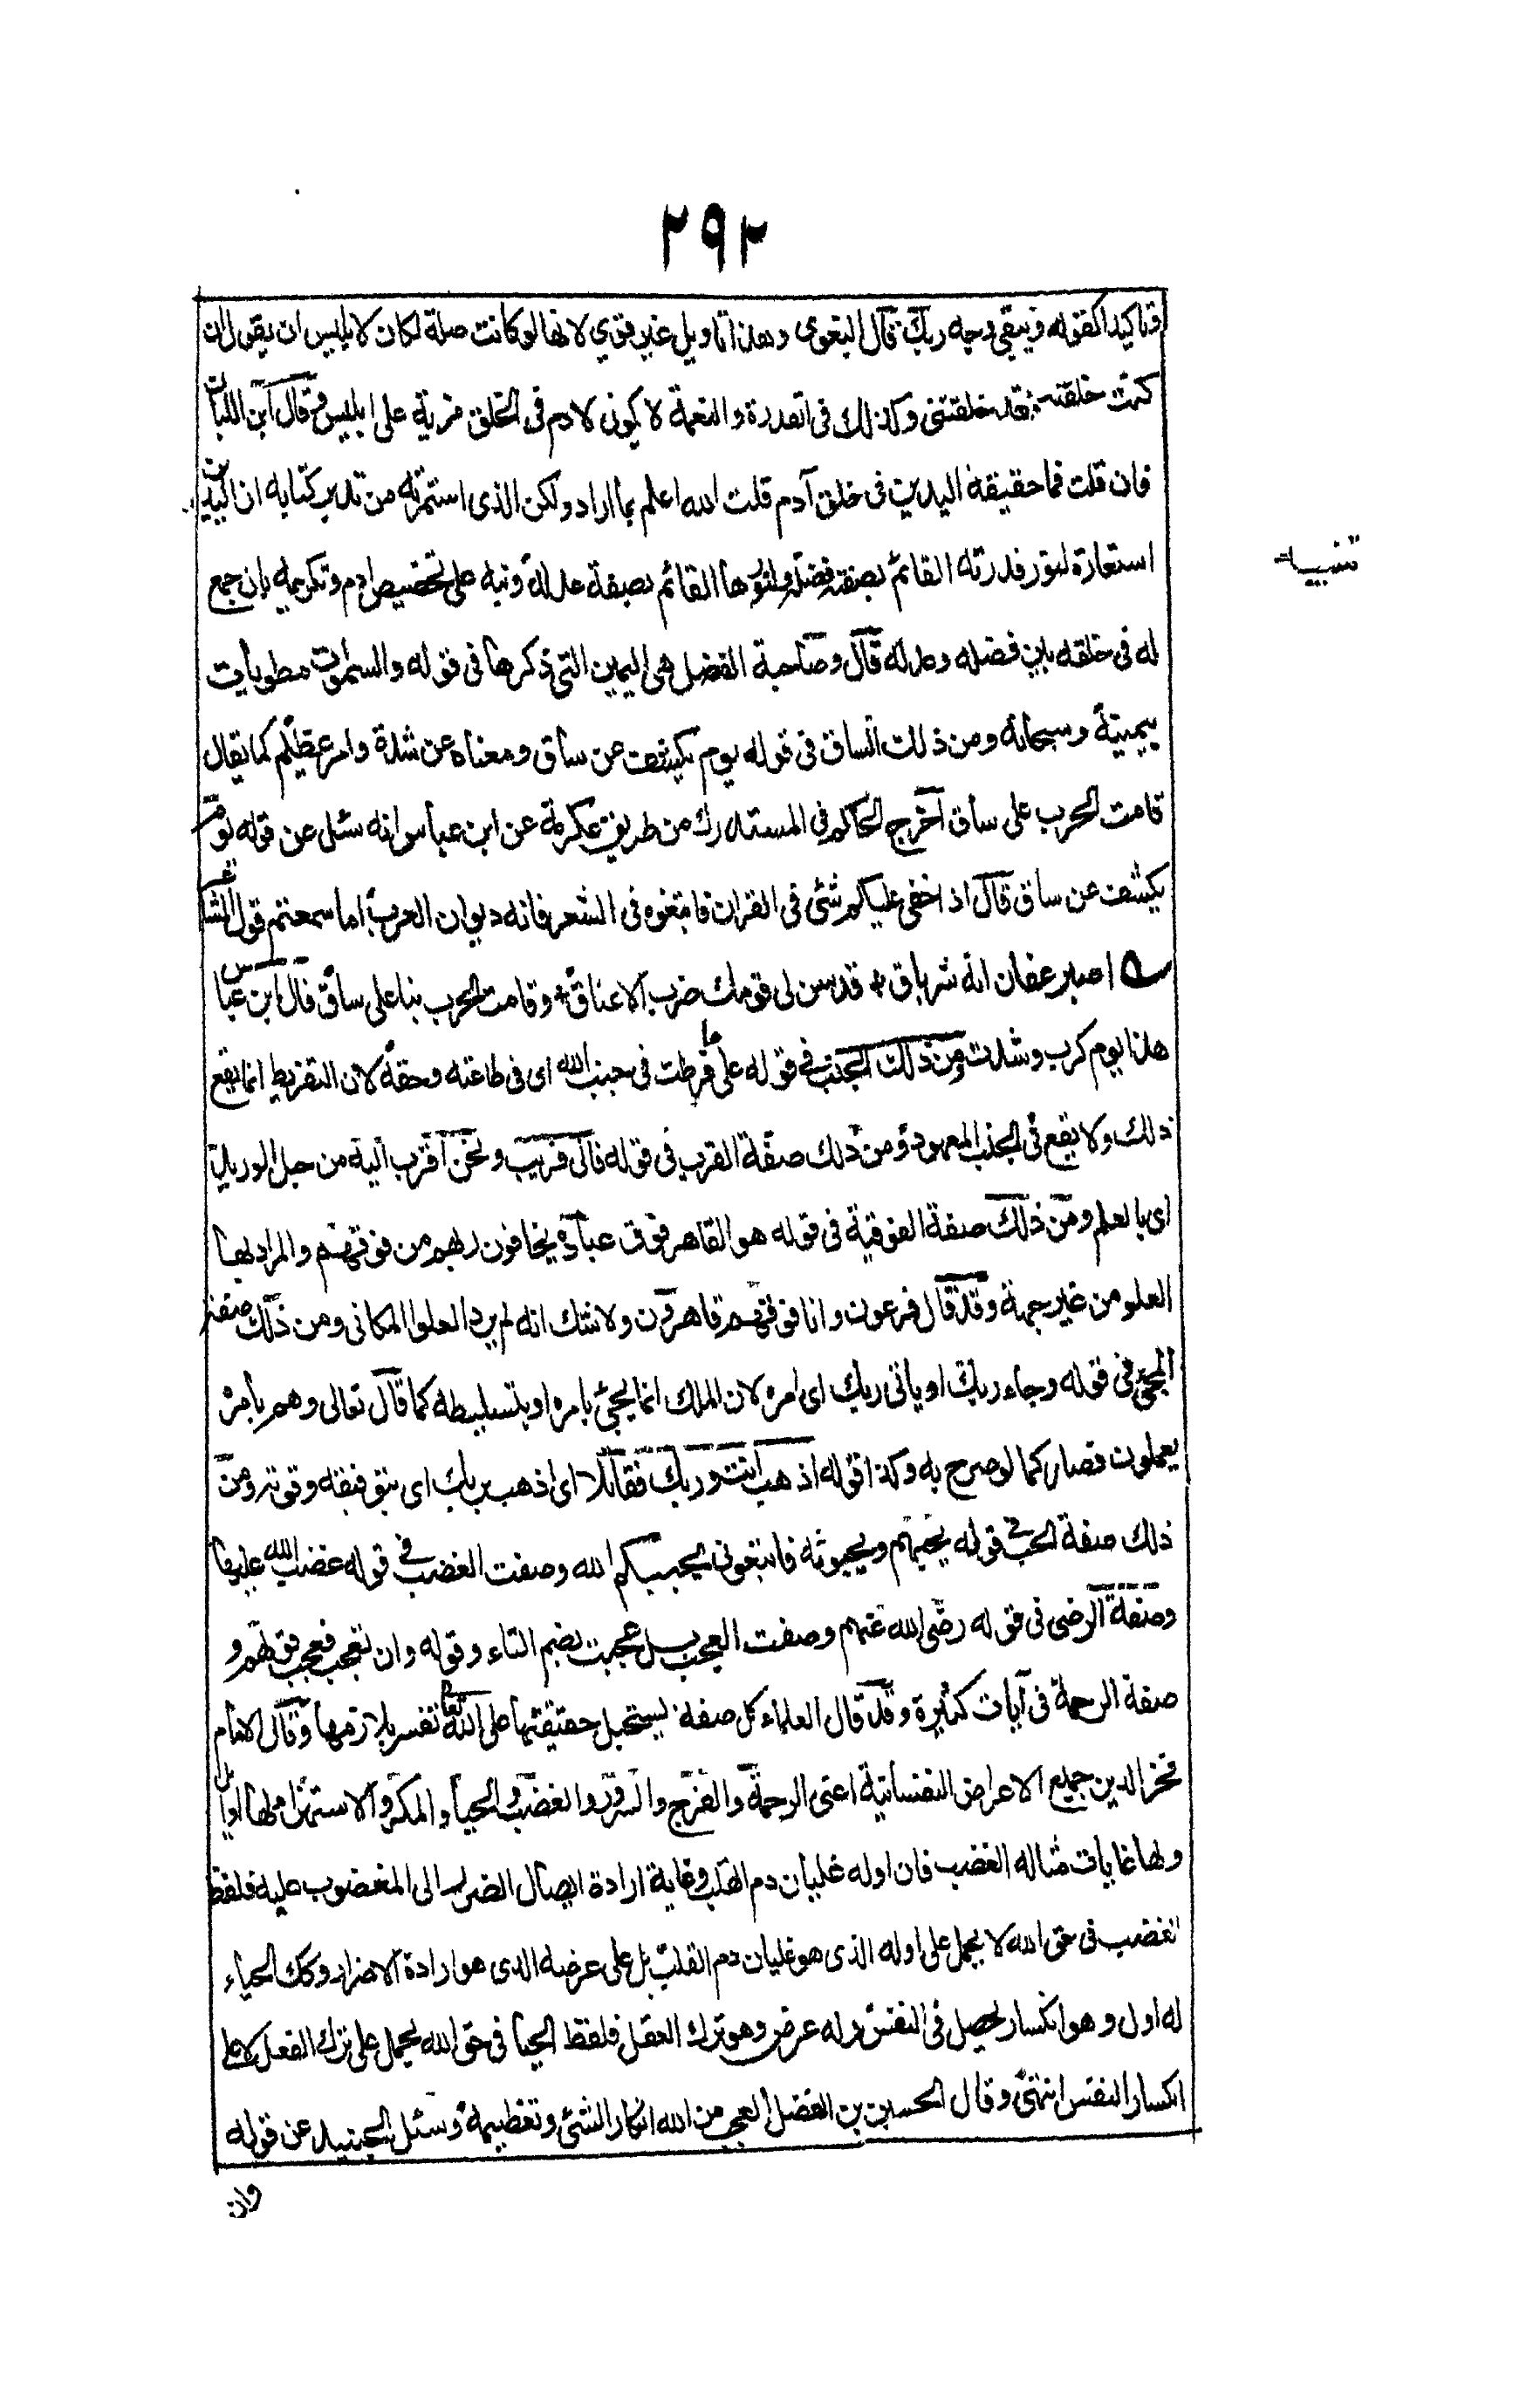 ٢٩٢
وتاكيدا كقوله ويبقى وجه ربك قال البغوى وهذا تاويل غير قوي لانها لو كانت صلة لكان لابليس ان يقول ان
كنت خلقته فقد خلقتنى وكذلك فى القدرة والنعمة لا يكون لادم فى الخلق مزية على ابليس وقال ابن اللبان
فان قلت فما حقيقة اليدين فى خلق آدم قلت الله اعلم بما اراد ولكن الذى استثمرته من تدبر كتابه ان اليدين
استعارة لنور قدرته القائم بصفة فضله ولنورها القائم بصفة عدله ونبه على تخصيص ادم وتكريمه بان جمع
تنبيه
له فى خلقه بين فضله وعدله قال وصاحبة الفضل هى اليمين التى ذكرها فى قوله والسموات مطويات
بيمينه وسبحانه ومن ذلك الساق فى قوله يوم يكشف عن ساق ومعناه عن شدة وامر عظيم كما يقال
قامت الحرب على ساق اخرج الحاكم فى المستدرك من طريق عكرمة عن ابن عباس انه سئل عن قوله يوم
يكشف عن ساق قال اذا خفى عليكم شئ فى القران فابتغوه فى الشعر فانه ديوان العرب اما سمعتم قول الشاعر
اصبر عفان انه شر باق + قد سن لى قومك ضرب الاعناق + وقامت الحرب بنا على ساق قال ابن عباس
هذا يوم كرب وشدت ومن ذلك الجنب فى قوله على ما فرطت فى جنب الله اى فى طاعته وحقه لان التفريط انما يقع
ذلك ولا يقع فى الجنب المعهود ومن ذلك صفة القرب فى قوله فانى قريب ونحن اقرب اليه من حبل الوريد
اى بالعلم ومن ذلك صفة الفوقية فى قوله هو القاهر فوق عباده يخافون ربهم من فوقهم والمراد بها
العلو من غير جهة وقد قال فرعون وانا فوقهم قاهرون ولا شك انه لم يرد العلو المكانى ومن ذلك صفة
المجئ فى قوله وجاء ربك او ياتى ربك اى امره لان الملك انما يجئ بامره او بتسليطه كما قال تعالى وهم بامره
يعملون فصار كما لو صرح به وكذا قوله اذهب انت وربك فقاتلا اى اذهب بربك اى بتوفيقه وقوته ومن
ذلك صفة الحب فى قوله يحبهم ويحبونه فاتبعونى يحببكم الله وصفت الغضب فى قوله غضب الله عليها
وصفة الرضى فى قوله رضى الله عنهم وصفت العجب بل عجبت بضم التاء وقوله وان تعجب فعجب قولهم و
صفة الرحمة فى آيات كثيرة وقد قال العلماء كل صفة يستحيل حقيقتها على الله تعا تفسر بلازمها وقال الامام
فخر الدين جميع الاعراض النفسانية اعنى الرحمة والفرح والسرور والغضب والحيا والمكر والاستهزاء لها اوايل
ولها غايات مثاله الغضب فان اوله غليان دم القلب وغاية ارادة ايصال الضرر الى المغضوب عليه فلفظ
الغضب فى حق الله لا يحمل على اوله الذى هو غليان دم القلب بل على غرضه الذى هو ارادة الاضرار وكك الحياء
له اول وهو انكسار يحصل فى النفس وله غرض وهو ترك الفعل فلفظ الحيا فى حق الله يحمل على ترك الفعل لا على
انكسار النفس انتهى وقال الحسين بن الفضل العجب من الله انكار الشئ وتعظيمه وسئل الجنيد عن قوله
وان